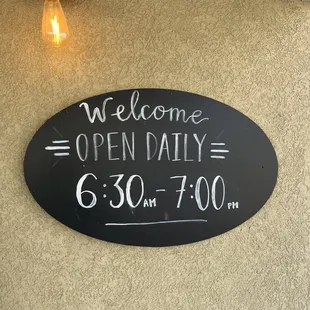 Welcome
OPEN DAILY
6:30 AM - 7:00 PM